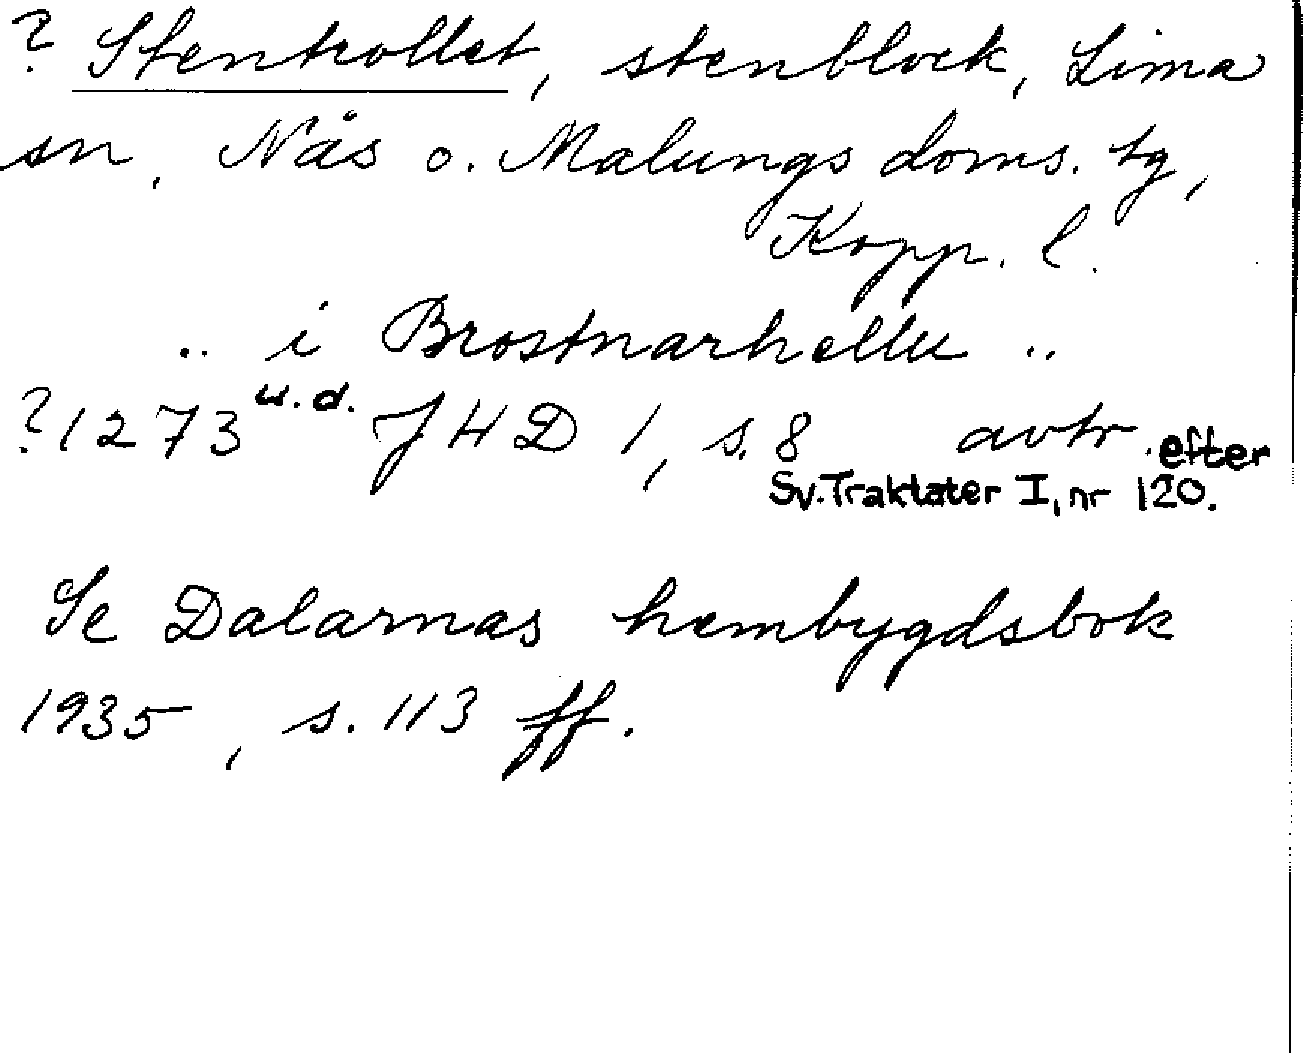 ? Stentrollet, stenblock, Lima
sn, Nås o. Malungs doms. tg,
Kopp. l.
.. i Brostnarhellu ..
?1273 u.d. JHD 1, s. 8 avtr. efter
Sv. Traktater I, nr 120.
Se Dalarnas hembygdsbok
1935, s. 113 ff.